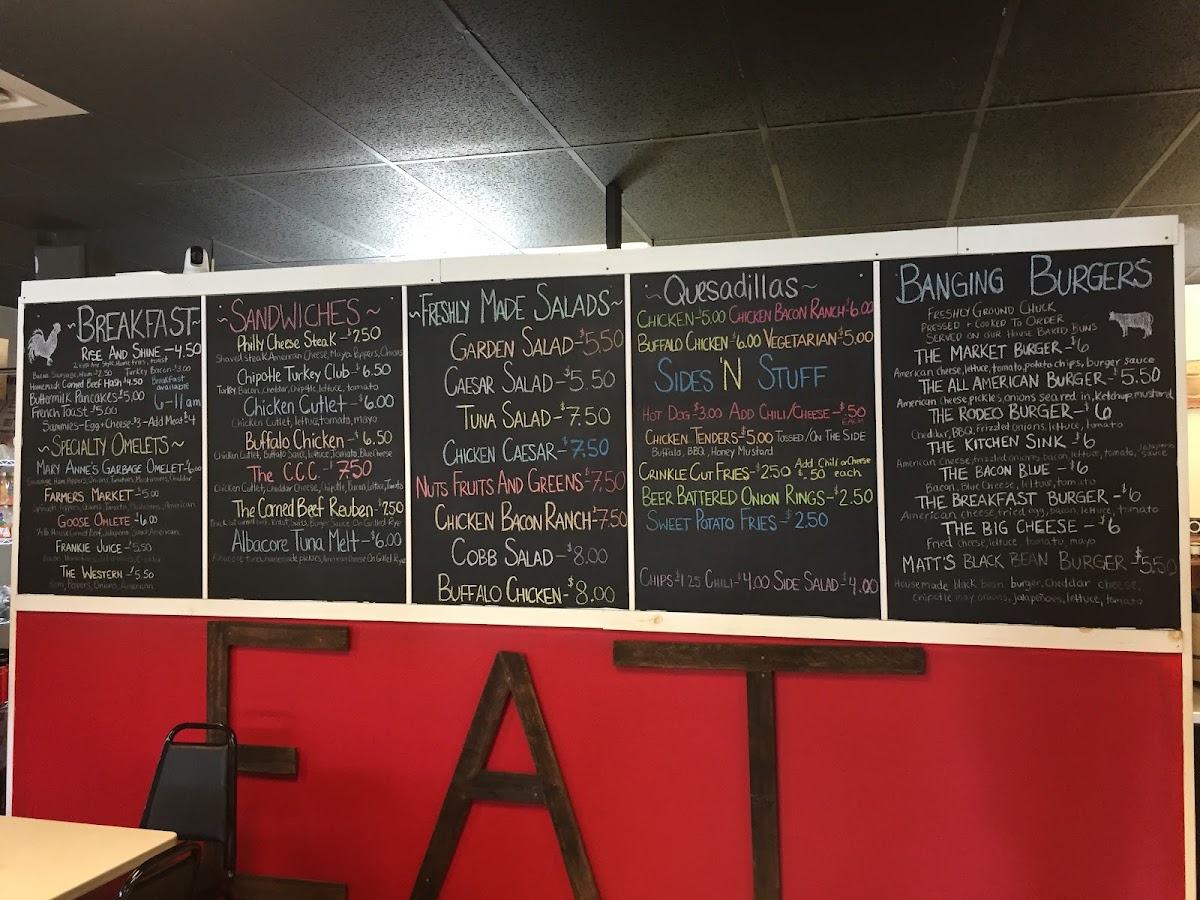 ~BREAKFAST~
RISE AND SHINE -4.50
2 Eggs Any Style, Homefries, toast
Bacon, Sausage, Ham -$2.50 Turkey Bacon -$3.00
Homemade Corned Beef Hash $4.50
Buttermilk Pancakes -$5.00
French Toast -$5.00
Breakfast
available
6-11am
Sammies-Egg + Cheese-$3-Add Meat $4
~SPECIALTY OMELETS~
MARY ANNE'S GARBAGE OMELET-$6.00
Sausage, Ham, Peppers, Onions, Tomatoes, Mushrooms, Cheddar
FARMERS MARKET -$5.00
Spinach, Peppers, Onions, Tomato, Mushrooms, American
GOOSE OMLETE -$6.00
FRANKIE JUICE -$5.50
THE WESTERN -$5.50
Ham, Peppers, Onions, American
~SANDWICHES~
Philly Cheese Steak -$7.50
Shaved steak, American Cheese, Mayo, Peppers, Onions
Chipotle Turkey Club -$6.50
Turkey, Bacon, cheddar, chipotle, lettuce, tomato
Chicken Cutlet -$6.00
Chicken Cutlet, lettuce, tomato, mayo
Buffalo Chicken -$6.50
Chicken Cutlet, Buffalo Sauce, lettuce, Tomato, Blue Cheese
The C.C.C. -$7.50
Chicken Cutlet, Cheddar Cheese, Chipotle, Bacon, Lettuce, Tomato
The Corned Beef Reuben -$7.50
Thick cut corned beef, Kraut, Swiss, Burger Sauce, On Grilled Rye
Albacore Tuna Melt -$6.00
Albacore tuna, homemade pickles, American Cheese On Grilled Rye
~FRESHLY MADE SALADS~
GARDEN SALAD -$5.50
CAESAR SALAD -$5.50
TUNA SALAD -$7.50
CHICKEN CAESAR -$7.50
NUTS FRUITS AND GREENS -$7.50
CHICKEN BACON RANCH -$7.50
COBB SALAD -$8.00
BUFFALO CHICKEN -$8.00
~Quesadillas~
CHICKEN -$5.00 CHICKEN BACON RANCH -$6.00
BUFFALO CHICKEN -$6.00 VEGETARIAN -$5.00
SIDES 'N STUFF
HOT DOG $3.00 ADD CHILI/CHEESE -$.50
EACH
CHICKEN TENDERS -$5.00 TOSSED/ON THE SIDE
Buffalo, BBQ, Honey Mustard
CRINKLE CUT FRIES -$2.50 Add Chili or Cheese
$.50 each
BEER BATTERED ONION RINGS -$2.50
SWEET POTATO FRIES -$2.50
CHIPS $1.25 CHILI -$4.00 SIDE SALAD -$4.00
BANGING BURGERS
FRESHLY GROUND CHUCK
PRESSED + COOKED TO ORDER
SERVED ON OUR HOUSE BAKED BUNS
THE MARKET BURGER -$6
American cheese, lettuce, tomato, potato chips, burger sauce
THE ALL AMERICAN BURGER -$5.50
American cheese, pickles, onions seared in, Ketchup, mustard
THE RODEO BURGER -$6
Cheddar, BBQ, frizzled onions, lettuce, tomato
THE KITCHEN SINK -$6
American cheese, frizzled onions, bacon, lettuce, tomato, jalapeños, sauce
THE BACON BLUE -$6
Bacon, Blue cheese, lettuce, tomato
THE BREAKFAST BURGER -$6
American cheese, fried egg, bacon, lettuce, tomato
THE BIG CHEESE -$6
Fried cheese, lettuce, tomato, mayo
MATT'S BLACK BEAN BURGER -$5.50
Housemade black bean burger, Cheddar cheese,
chipotle mayo, onions, jalapeños, lettuce, tomato
EAT